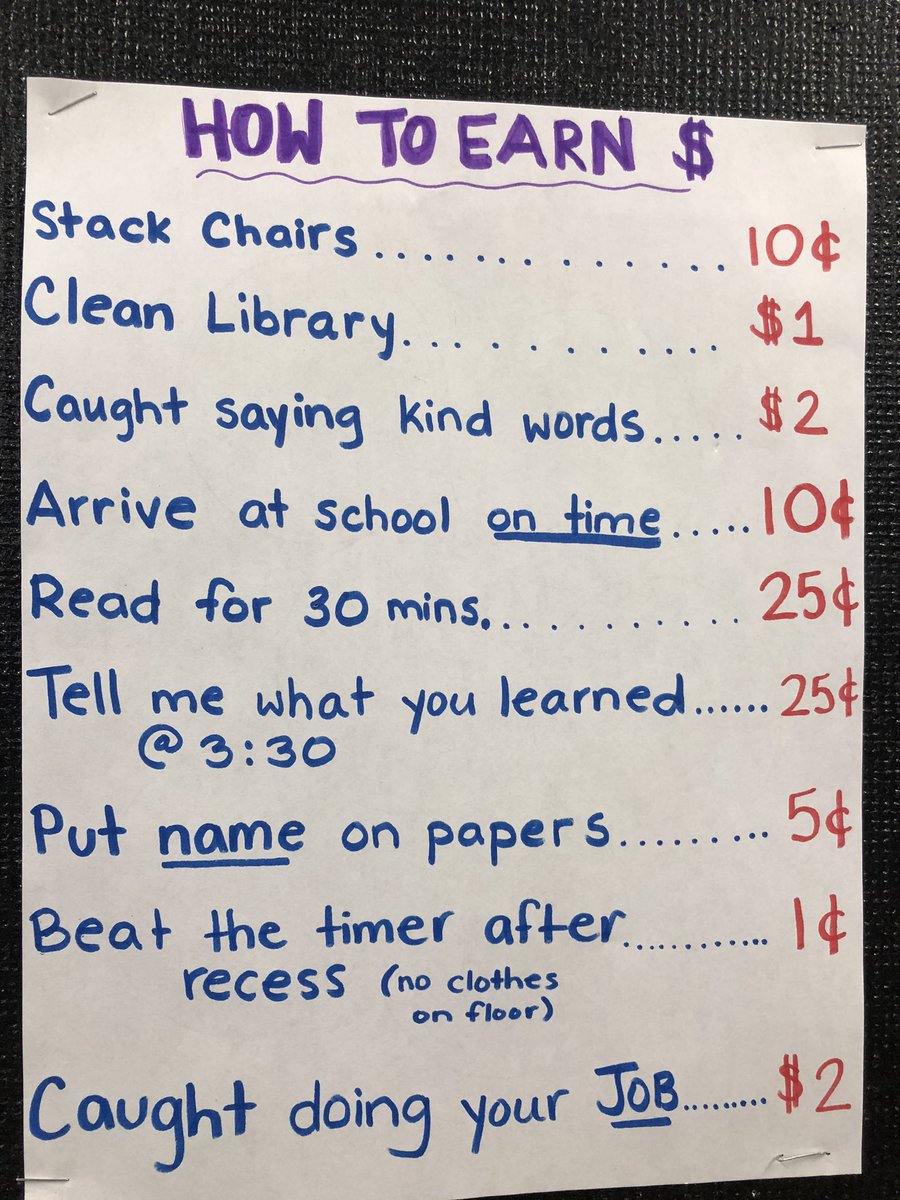 HOW TO EARN $
Stack Chairs............. 10¢
Clean Library........... $1
Caught saying kind words..... $2
Arrive at school on time.....10¢
Read for 30 mins........... 25¢
Tell me what you learned...... 25¢
@ 3:30
Put name on papers......... 5¢
Beat the timer after........... 1¢
recess (no clothes
on floor)
Caught doing your JOB......... $2